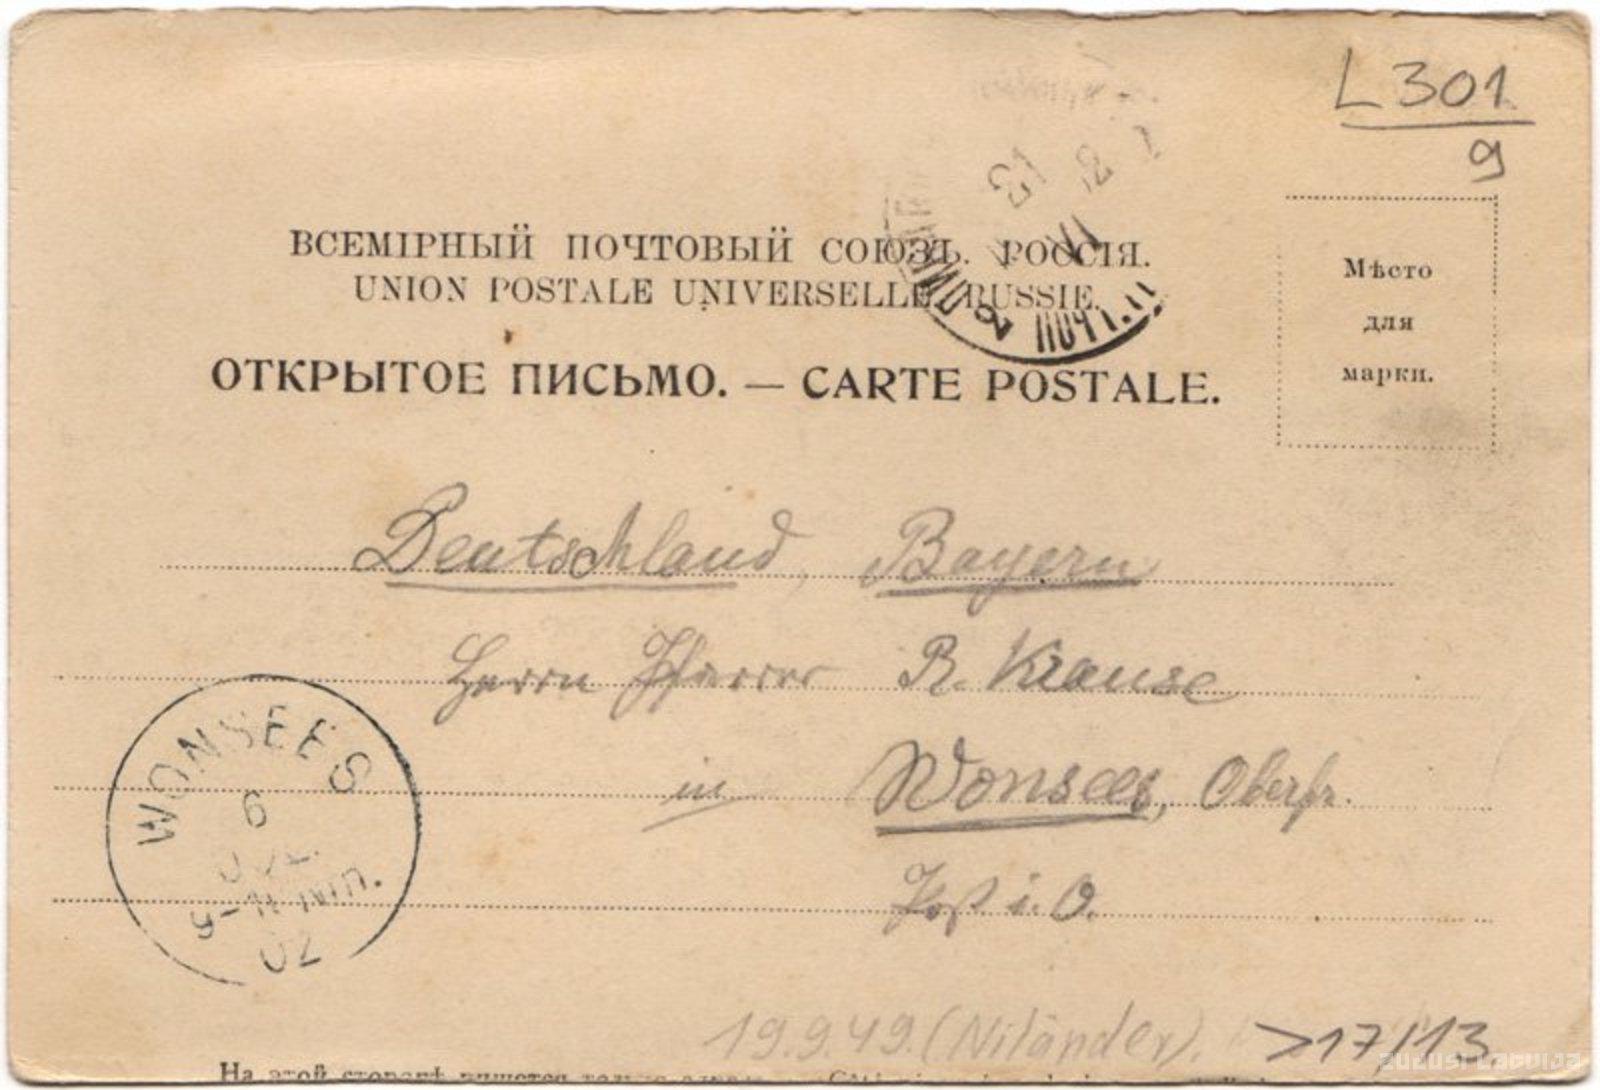 L301
9
ВСЕМІРНЫЙ ПОЧТОВЫЙ СОЮЗЪ. РОССІЯ.
UNION POSTALE UNIVERSELLE. RUSSIE.
ОТКРЫТОЕ ПИСЬМО. — CARTE POSTALE.
Мѣсто
для
марки.
Deutschland, Bayern
Herrn Pfarrer R. Krause
in Wonsees, Oberfr.
Post i. O.
WONSEES
6
JUL.
9-11 Vm.
02
19.9.49. (Niländer).
>17/13
На этой сторонѣ пишется только
zudusi latvija